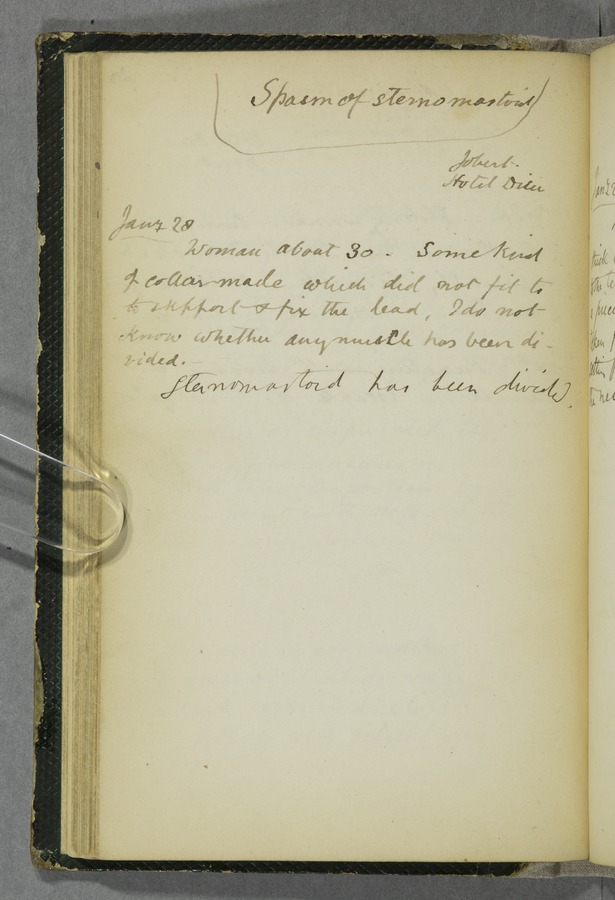 Spasm of sternomastoid
Jobert.
Hotel Dieu
Jany 28
Woman about 30 - Some kind
of collar made which did not fit to
to support & fix the head, I do not
know whether any muscle has been di-
vided. -
Sternomastoid has been divided.